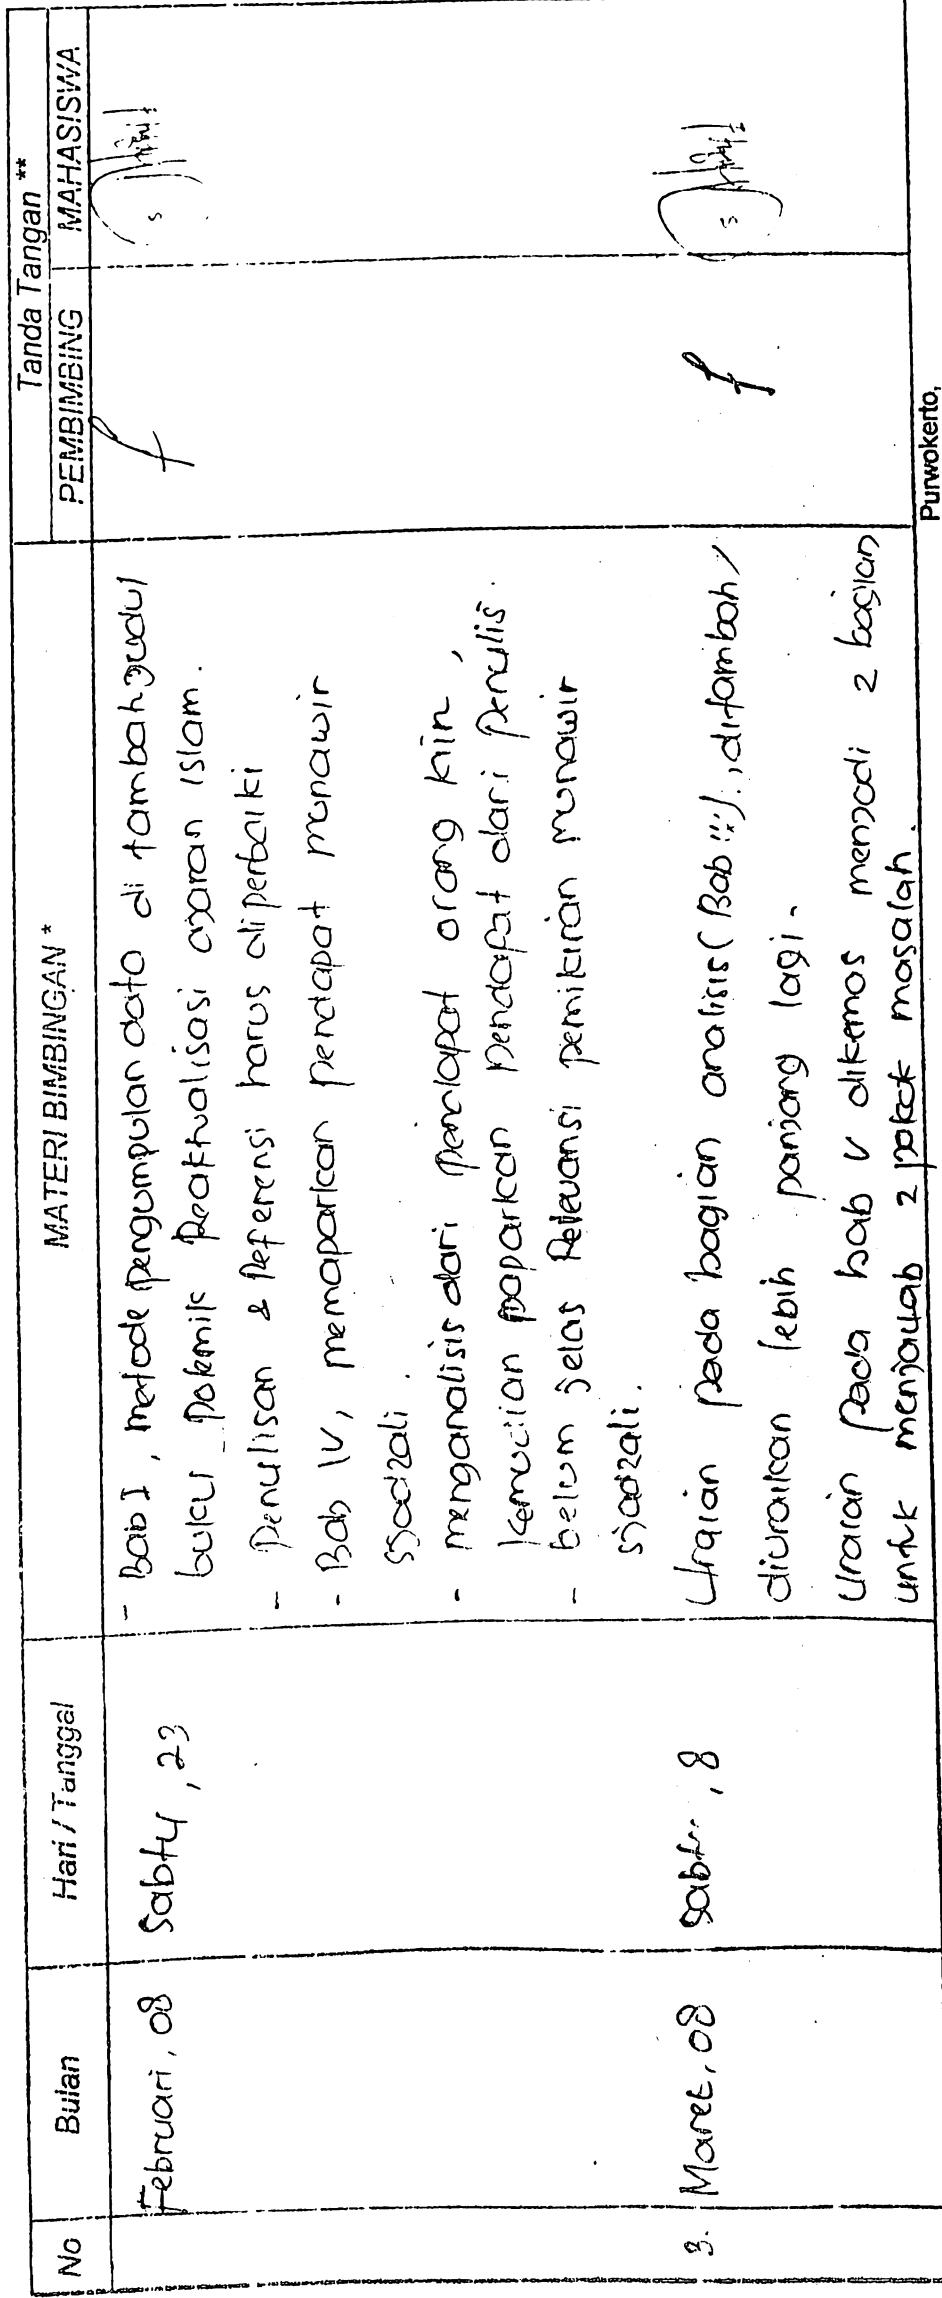 No Bulan Hari / Tanggal MATERI BIMBINGAN * Tanda Tangan **
PEMBIMBING MAHASISWA
Februari, 08 Sabtu, 23
- Bab I, metode pengumpulan data di tambah judul
buku polemik Reaktualisasi ajaran Islam.
- Penulisan & Referensi harus diperbaiki
- Bab IV, memaparkan pendapat munawir
sjadzali.
- menganalisis dari pendapat orang lain,
kemudian paparkan pendapat dari penulis.
- belum jelas Relevansi pemikiran munawir
sjadzali.
3. Maret, 08 Sabtu, 8
Uraian pada bagian analisis (Bab), ditambah,
diuraikan lebih panjang lagi.
Uraian pada bab V dikemas menjadi 2 bagian
untuk menjawab 2 pokok masalah.
Purwokerto,